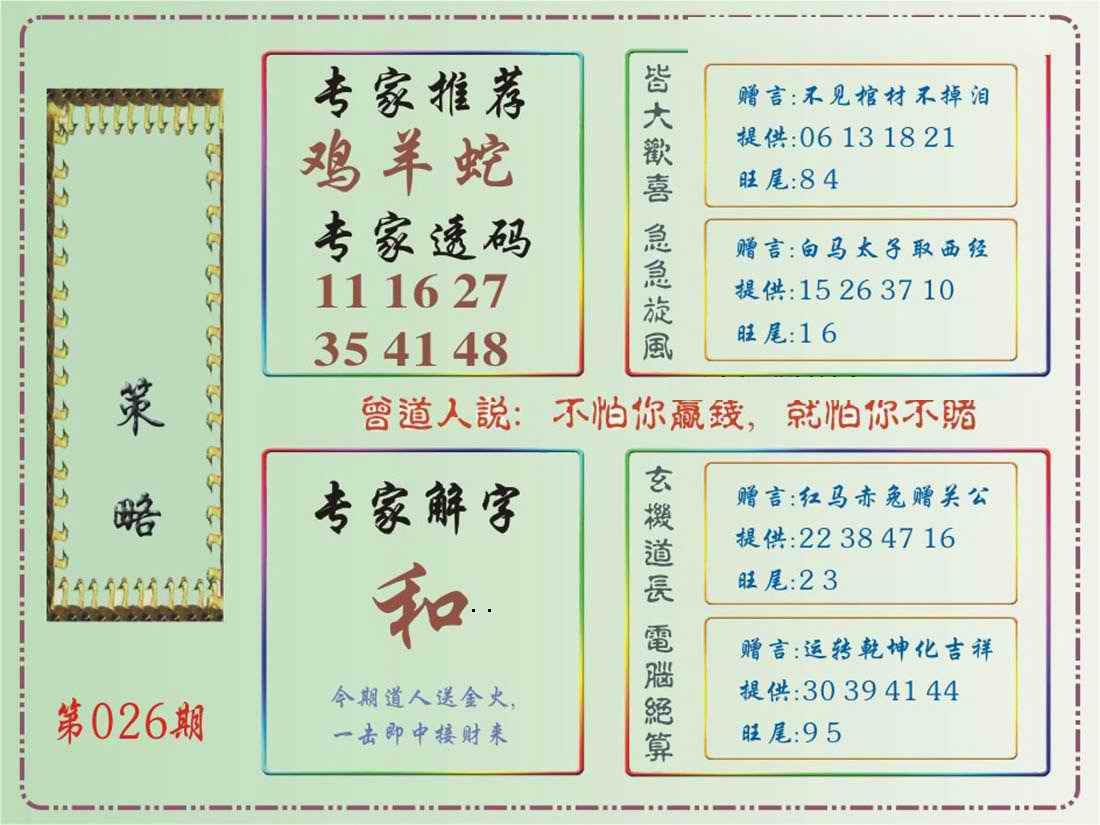 策
略
第026期
专家推荐
鸡羊蛇
专家透码
11 16 27
35 41 48
皆大歡喜
赠言:不见棺材不掉泪
提供:06 13 18 21
旺尾:8 4
急急旋風
赠言:白马太子取西经
提供:15 26 37 10
旺尾:1 6
曾道人説: 不怕你贏錢, 就怕你不賭
专家解字
和..
今期道人送金火,
一击即中接财来
玄機道長
赠言:红马赤兔赠关公
提供:22 38 47 16
旺尾:2 3
電腦絕算
赠言:运转乾坤化吉祥
提供:30 39 41 44
旺尾:9 5